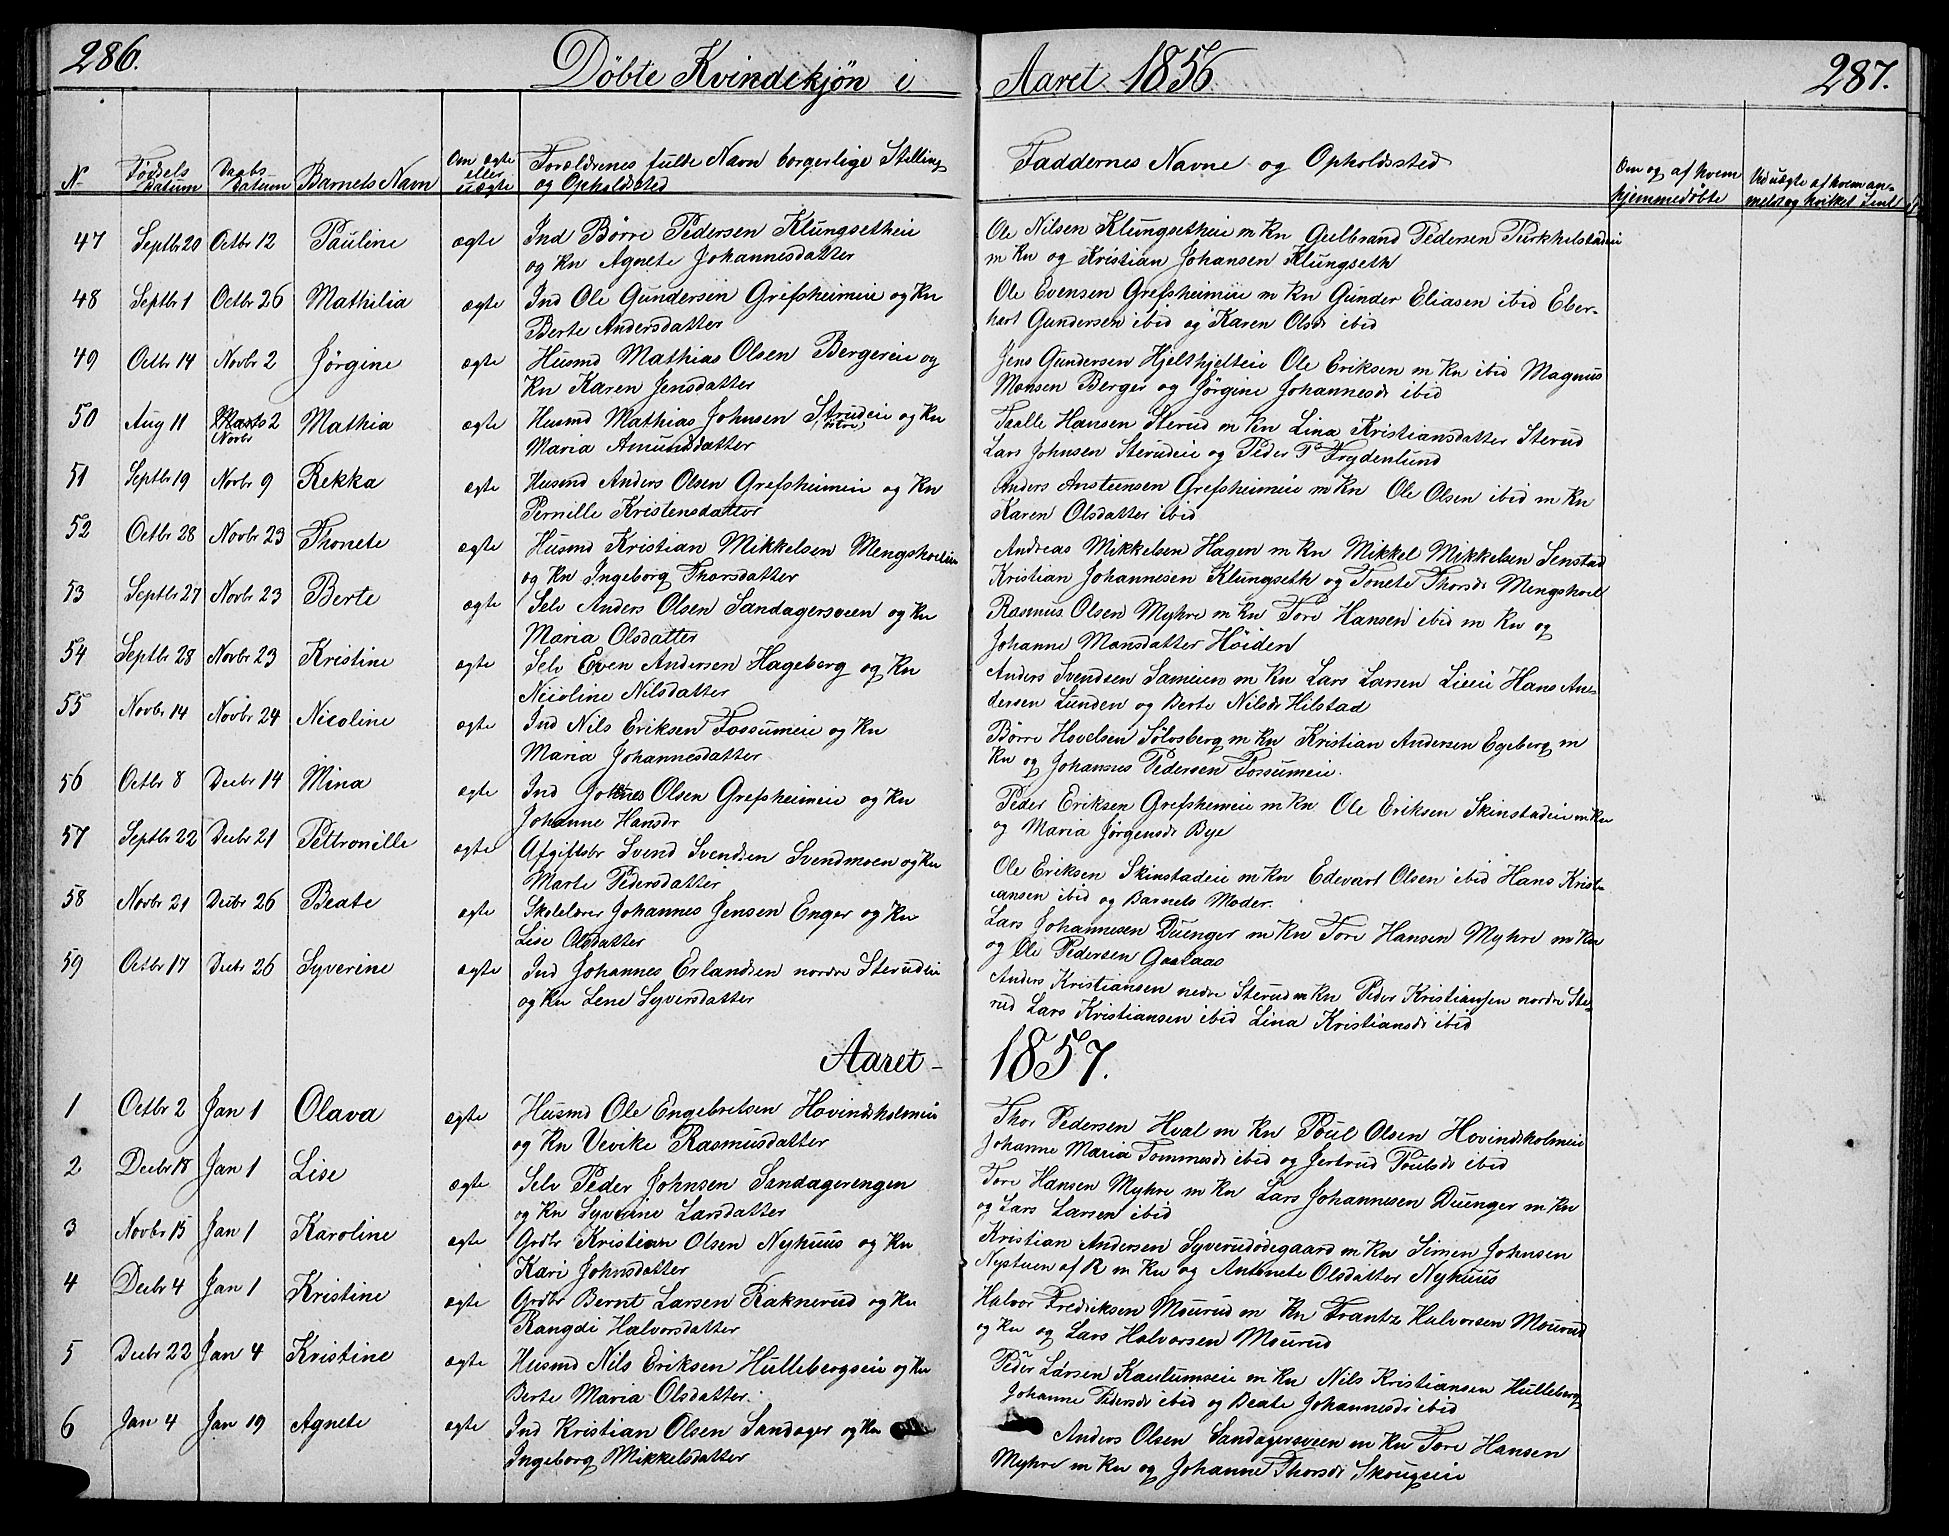 286.
Døbte Kvindekjøn i
Aaret 1856
287.
N
Fødsels datum
Daabs datum
Barnets Navn
Om ægte eller uægte
Forældrenes fulde Navn borgerlige Stilling og Opholdsted
Faddernes Navne og Opholdssted
Om og af hvem hjemmedøbte
Ved uægte af hvem anmeldt og hvilket
47 Septbr 20 Octbr 12 Pauline ægte Ind Børre Pedersen Klungsetheie
og Kn Agnete Johannesdatter
Ole Nilsen Klungsetheie m Kn Gulbrand Pedersen Turkhelstadeie
m Kn og Kristian Johansen Klungseth
48 Septbr 1 Octbr 26 Mathilia ægte Ind Ole Gundersen Grefsheimeie og Kn
Berte Andersdatter
Ole Evensen Grefsheimeie m Kn Gunder Eliasen ibid Eber-
hart Gundersen ibid og Karen Olsdr ibid
49 Octbr 14 Novbr 2 Jørgine ægte Husmd Mathias Olsen Bergereie og
Kn Karen Jensdatter
Jens Gundersen Hjelshjelteie Ole Eriksen m Kn ibid Magnus
Monsen Berger og Jørgine Johannesdr ibid
50 Aug 11 Novbr 2 Mathia ægte Husmd Mathias Johnsen Sterudeie og Kn
Maria Amundsdatter
Taalle Hansen Sterud m Kn Lina Kristiansdatter Sterud
Lars Johnsen Sterudeie og Peder P Frydenlund
51 Septbr 19 Novbr 9 Rekka ægte Husmd Anders Olsen Grefsheimeie og Kn
Pernille Kristensdatter
Anders Ansteensen Grefsheimeie m Kn Ole Olsen ibid m Kn
Karen Olsdatter ibid
52 Octbr 28 Novbr 23 Thonete ægte Husmd Kristian Mikkelsen Mengshoeleie
og Kn Ingeborg Thorsdatter
Andreas Mikkelsen Hagen m Kn Mikkel Mikkelsen Senstad
Kristian Johannesen Klungseth og Tonete Thorsdr Mengshoel
53 Septbr 27 Novbr 23 Berte ægte Selv Anders Olsen Sandagersveen og Kn
Maria Olsdatter
Rasmus Olsen Myhre m Kn Tore Hansen ibid m Kn og
Johanne Monsdatter Høiden
54 Septbr 28 Novbr 23 Kristine ægte Selv Even Andersen Hageberg og Kn
Nicoline Nilsdatter
Anders Svendsen Sameien m Kn Lars Larsen Lieeie Hans An-
dersen Lunden og Berte Nilsdr Hilstad
55 Novbr 14 Novbr 24 Nicoline ægte Ind Nils Eriksen Fossumeie og Kn
Maria Johannesdatter
Børre Hovelsen Sølvsberg m Kn Kristian Andersen Egeberg m
Kn og Johannes Pedersen Fossumeie.
56 Octbr 8 Decbr 14 Mina ægte Ind Johnes Olsen Grefsheimeie og Kn
Johanne Hansdr
Peder Eriksen Grefshemeie m Kn Ole Eriksen Skinstadeie m Kn
og Maria Jørgensdr Bye
57 Septbr 22 Decbr 21 Pettronille ægte Afgiftsbr Svend Svendsen Svendmoen og Kn
Marte Pedersdatter
Ole Eriksen Skinstadeie m Kn Edevart Olsen ibid Hans Krist-
iansen ibid og Barnets Moder.
58 Novbr 21 Decbr 26 Beate ægte Skolelærer Johannes Jensen Enger og Kn
Lise Olsdatter
Lars Johannesen Duenger m Kn Tore Hansen Myhre m Kn
og Ole Pedersen Gaalaas
59 Octbr 17 Decbr 26 Syverine ægte Ind Johannes Erlandsen nordre Sterudeie
og Kn Lene Syversdatter
Anders Kristiansen nedre Sterud m Kn Peder Kristiansen nordre Ste-
rud Lars Kristiansen ibid Lina Kristiansdr ibid
Aaret - 1857.
1 Octbr 2 Jan 1 Olava ægte Husmd Ole Engebretsen Hovindsholmeie
og Kn Vevike Rasmusdatter
Thor Pedersen Hval m Kn Poul Olsen Hovindsholmeie
Johanne Maria Tommesdr ibid og Jertrud Poulsdr ibid
2 Decbr 18 Jan 1 Lise ægte Selv Peder Johnsen Sandagerengen
og Kn Syverine Larsdatter
Tore Hansen Myhre m Kn Lars Johannesen Duenger m Kn
og Lars Larsen ibid
3 Novbr 15 Jan 1 Karoline ægte Grdbr Kristian Olsen Nyhuus og Kn
Kari Johnsdatter
Kristian Andersen Syverudødegaard m Kn Simen Johnsen
Nystuen af R m Kn og Antonete Olsdatter Nyhuus
4 Decbr 4 Jan 1 Kristine ægte Grdbr Bernt Larsen Raknerud og Kn
Rangdi Halvorsdatter
Halvor Fredriksen Mourud m Kn Frantz Halvorsen Mourud
og Kn og Lars Halvorsen Mourud
5 Decbr 22 Jan 4 Kristine ægte Husmd Nils Eriksen Hullebergseie og Kn
Berte Maria Olsdatter.
Peder Larsen Kaulumseie m Kn Nils Kristiansen Hulleberg
Johanne Pedersdr ibid og Beate Johannesdr ibid
6 Jan 4 Jan 19 Agnete ægte Ind Kristian Olsen Sandager og Kn
Ingeborg Mikkelsdatter
Anders Olsen Sandagersveen m Kn Tore Hansen
Myhre m Kn og Johanne Thorsdr Skougseie